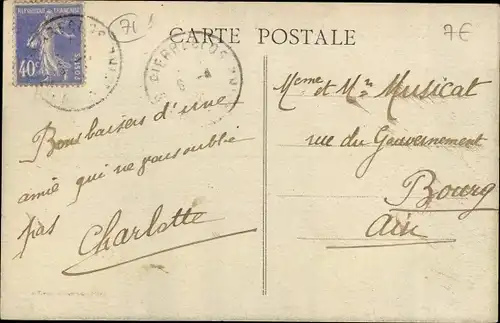 CARTE POSTALE
71
7€
REPUBLIQUE FRANÇAISE
40c
POSTES
PIERRECLOS
Bons baisers d'une
amie qui ne vous oublie
pas
Charlotte
Meme et Mr Musicat
rue du Gouvernement
Bourg
Ain